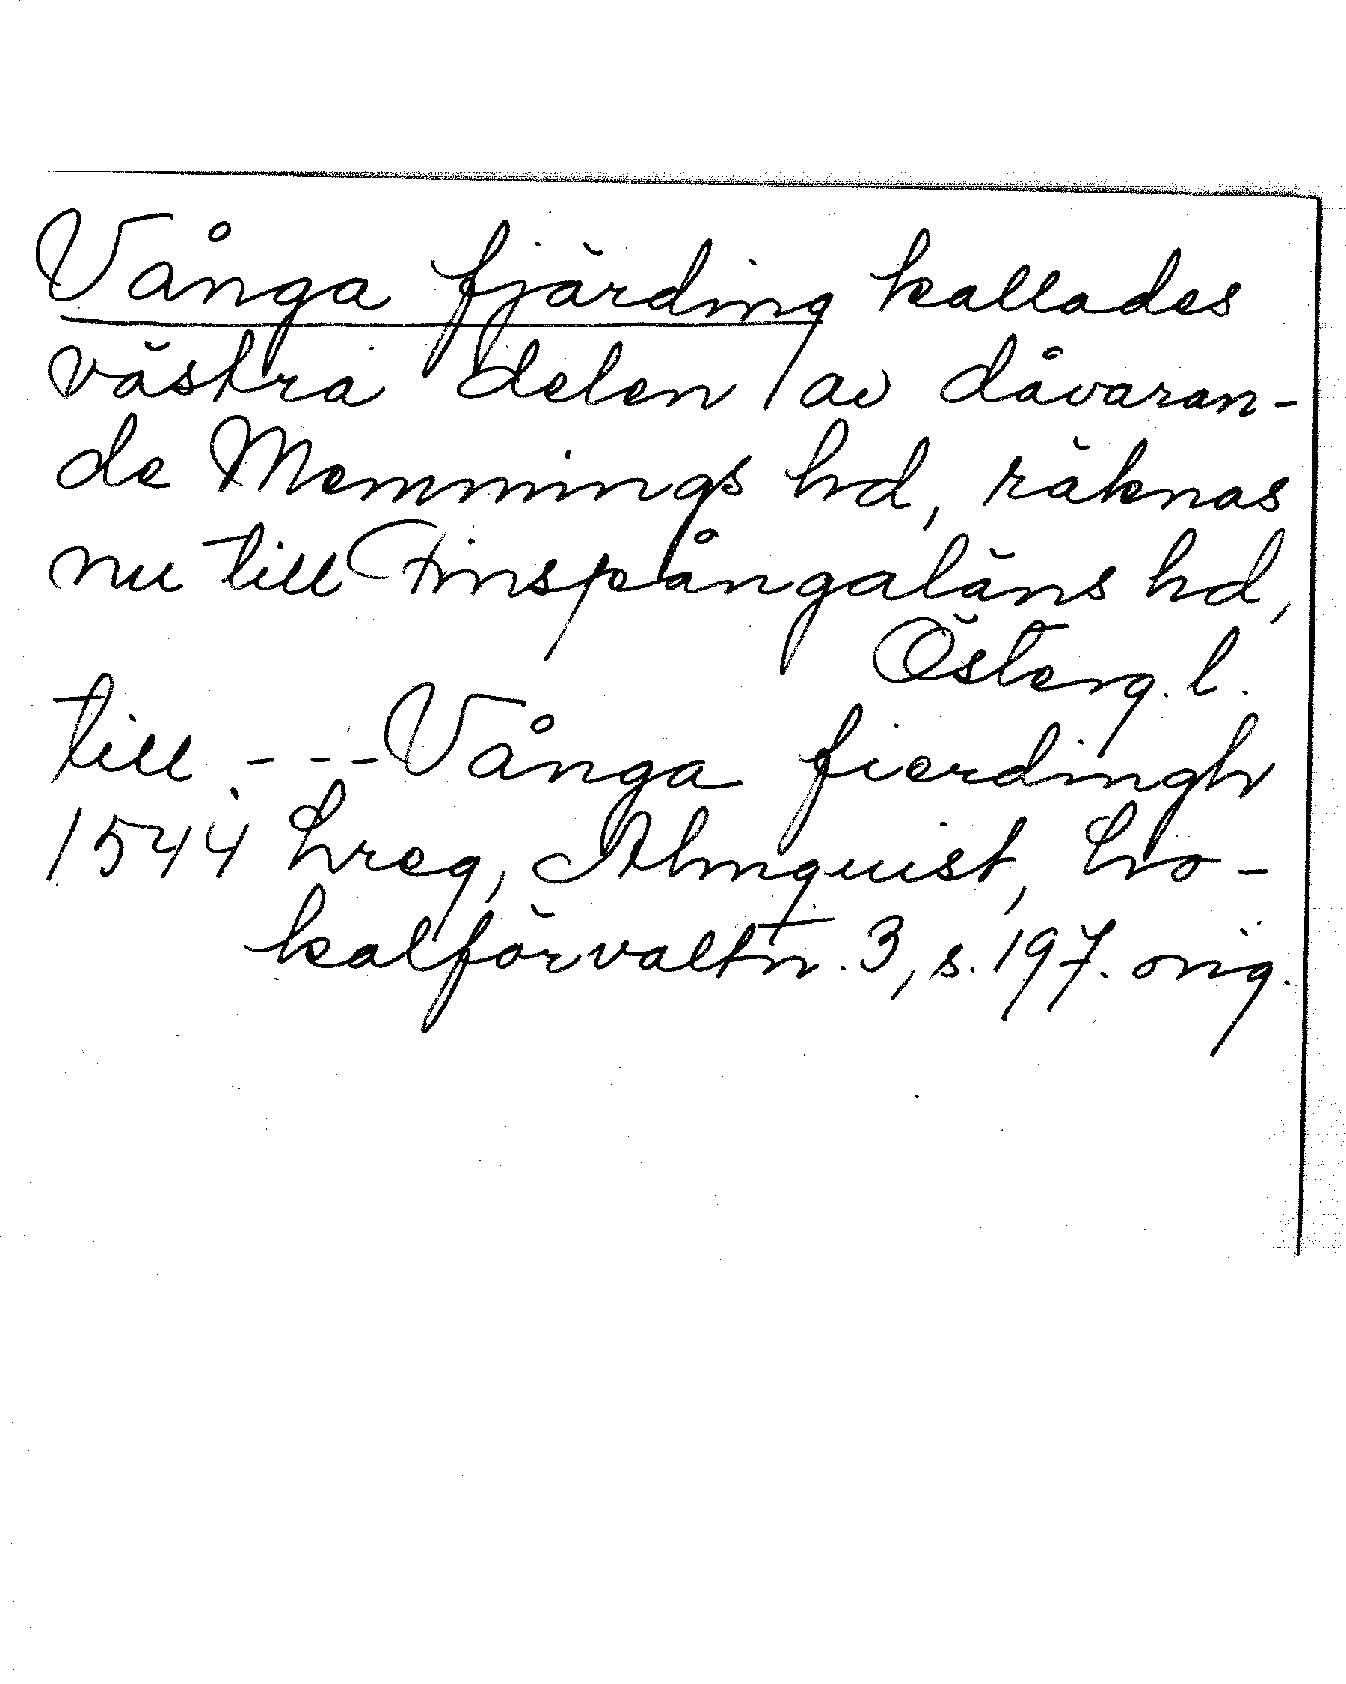 Vånga fjärding kallades
västra delen av dåvaran-
de Memmings hd, räknas
nu till Finspångaläns hd,
Österg. l.
till --- Vånga fierdingh
1544 Lreg, Almquist, Lo-
kalförvaltn. 3, s. 197. orig.